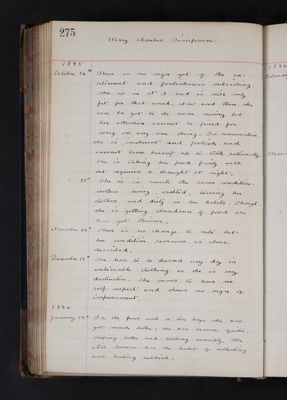 275
Mary Charles Simpson
1895
October 14th There is no sign yet of the ex-
citement and foolishness subsiding.
She is in et 3 and is still only
fit for that ward. Now and then she
can be got to do some sewing but
her attention cannot be fixed for
long on any one thing. In conversation
she is incoherent and foolish and
cannot bring herself up to talk rationally.
She is taking her food fairly well
but requires a draught at night.
" 28th She is in much the same condition,
restless, noisy, excited, tearing her
clothes and dirty in her habits. Though
she is getting abundance of food she
has got thinner.
November There is no change to note but
her condition remains as above
described.
December She has to be dressed every day in
untearable clothing as she is very
destructive. She seems to have no
self respect and shows no sign of
improvement.
1896
January In the past week or ten days she has
got much better; she has become quiet,
sleeping better and talking sensibly. She
still however has the habit of collecting
and keeping rubbish.